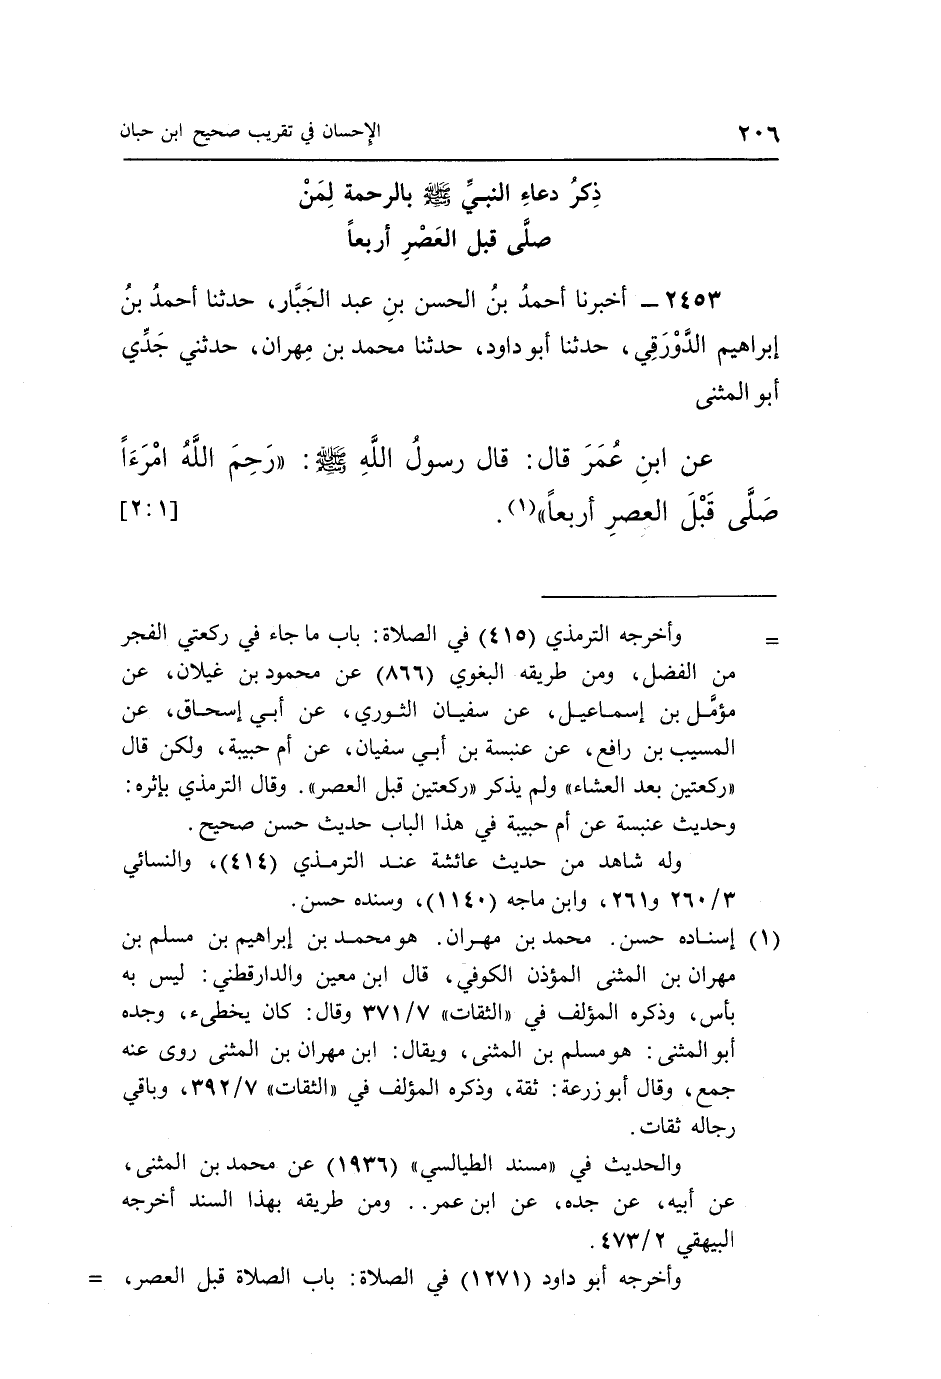 ٢٠٦ الإحسان في تقريب صحيح ابن حبان
ذِكرُ دعاءِ النبيِّ ﷺ بالرحمة لِمَنْ
صلَّى قبل العَصْرِ أربعاً
٢٤٥٣ ــ أخبرنا أحمدُ بنُ الحسن بنِ عبد الجَبَّار، حدثنا أحمدُ بنُ
إبراهيم الدَّوْرَقِي، حدثنا أبو داود، حدثنا محمد بن مِهران، حدثني جَدِّي
أبو المثنى
عن ابنِ عُمَرَ قال: قال رسولُ اللَّهِ ﷺ: «رَحِمَ اللَّهُ امْرَءَاً
صَلَّى قَبْلَ العصرِ أربعاً»(١). [١:٢]
= وأخرجه الترمذي (٤١٥) في الصلاة: باب ما جاء في ركعتي الفجر
من الفضل، ومن طريقه البغوي (٨٦٦) عن محمود بن غيلان، عن
مؤمَّل بن إسماعيل، عن سفيان الثوري، عن أبي إسحاق، عن
المسيب بن رافع، عن عنبسة بن أبي سفيان، عن أم حبيبة، ولكن قال
«ركعتين بعد العشاء» ولم يذكر «ركعتين قبل العصر». وقال الترمذي بإثره:
وحديث عنبسة عن أم حبيبة في هذا الباب حديث حسن صحيح.
وله شاهد من حديث عائشة عند الترمذي (٤١٤)، والنسائي
٢٦٠/٣ و٢٦١، وابن ماجه (١١٤٠)، وسنده حسن.
(١) إسناده حسن. محمد بن مهران. هو محمد بن إبراهيم بن مسلم بن
مهران بن المثنى المؤذن الكوفي، قال ابن معين والدارقطني: ليس به
بأس، وذكره المؤلف في «الثقات» ٣٧١/٧ وقال: كان يخطىء، وجده
أبو المثنى: هو مسلم بن المثنى، ويقال: ابن مهران بن المثنى روى عنه
جمع، وقال أبو زرعة: ثقة، وذكره المؤلف في «الثقات» ٣٩٢/٧، وباقي
رجاله ثقات.
والحديث في «مسند الطيالسي» (١٩٣٦) عن محمد بن المثنى،
عن أبيه، عن جده، عن ابن عمر.. ومن طريقه بهذا السند أخرجه
البيهقي ٤٧٣/٢.
وأخرجه أبو داود (١٢٧١) في الصلاة: باب الصلاة قبل العصر، =